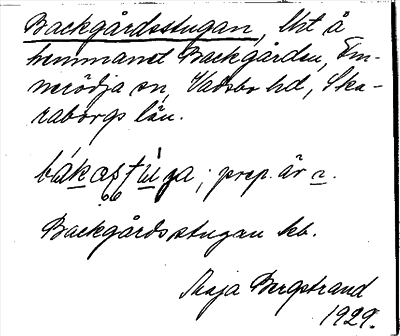 Backgårdsstugan, lht å
hemmanet Backgården, Em-
merödja sn, Vadsbo hd, Ska-
raborgs län.
; prep. är
Backgårdsstugan kb.
Maja Bergstrand
1929.